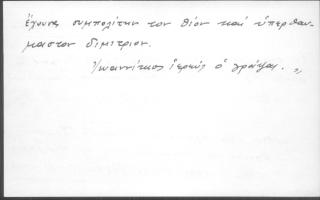 ἔχουσα συμπολίτην τον θῖον καὶ ὑπερθαυ-
μαστον διμιτριον.
Ἰωαννίκιος ἱερεὺς ὁ γράψας. „